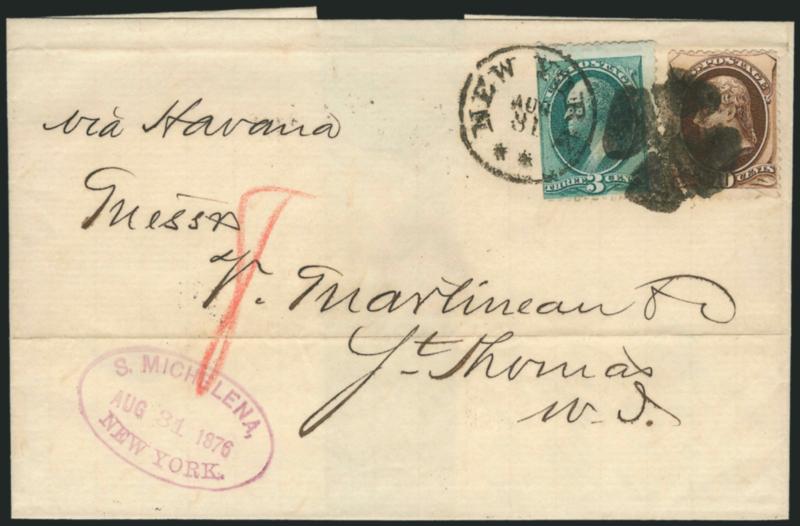 via Havana
NEW
AUG
31
U.S. POSTAGE
THREE 3 CENTS
POSTAGE
CENTS
Messrs
V. Martineau & Co
St Thomas
W. I.
S. MICHELENA,
AUG 31 1876
NEW YORK.